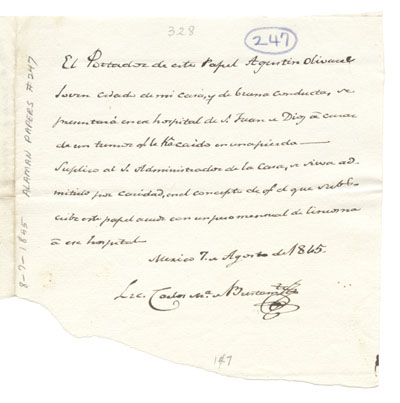 328
247
El Portador de este Papel Agustin Olivares
Joven criado de mi casa, y de buena conducta, se
presentará en ese hospital de S. Juan de Dios á curar
de un tumor qe le ha caido en una pierda
Suplico al S. Administrador de la Casa, se sirva ad-
mitirlo por caridad, en el concepto de qe el que subs-
cribe este papel acude con un peso mensual de limosna
á ese hospital.
Mexico 7. de Agosto de 1845.
Lic. Carlos Ma. de Bustamte
147
8-7-1845 ALAMAN PAPERS #247